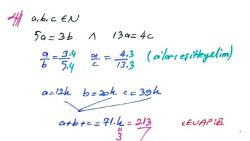 4) a,b,c ∈ N
5a=3b ∧ 13a=4c
a/b = 3.4/5.4 a/c = 4.3/13.3 (a'ları eşitleyelim)
a=12k b=20k c=39k
a+b+c=71.k=213
3
CEVAP:B